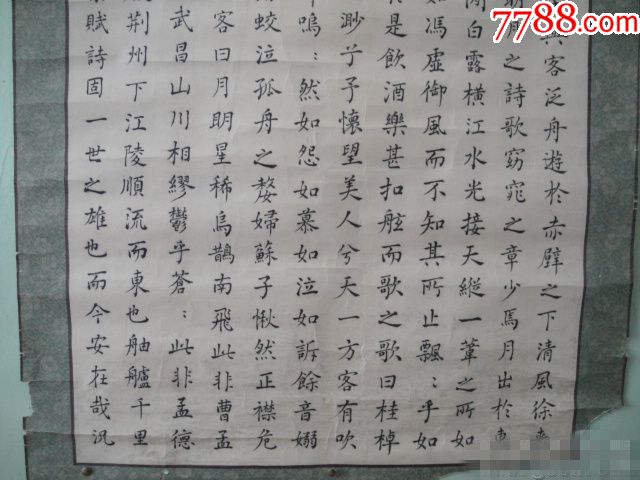 7788.com
客泛舟遊於赤壁之下清風徐
月之詩歌窈窕之章少焉月出於
白露橫江水光接天縱一葦之所如
馮虛御風而不知其所止飄:乎如
是飲酒樂甚扣舷而歌之歌曰桂棹
渺兮予懷望美人兮天一方客有吹
嗚:然如怨如慕如泣如訴餘音嫋
蛟泣孤舟之嫠婦蘇子愀然正襟危
客曰月明星稀烏鵲南飛此非曹孟
武昌山川相繆鬱乎蒼:此非孟德
荊州下江陵順流而東也舳艫千里
賦詩固一世之雄也而今安在哉況